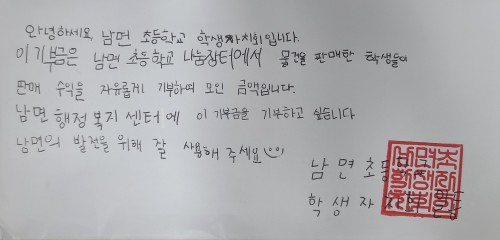 안녕하세요, 남면 초등학교 학생자치회입니다.
이 기부금은 남면 초등학교 나눔장터에서 물건을 판매한 학생들이
판매 수익을 자유롭게 기부하여 모인 금액입니다.
남면 행정복지 센터에 이 기부금을 기부하고 싶습니다
남면의 발전을 위해 잘 사용해 주세요
남면초등학교
학생자치회 일동